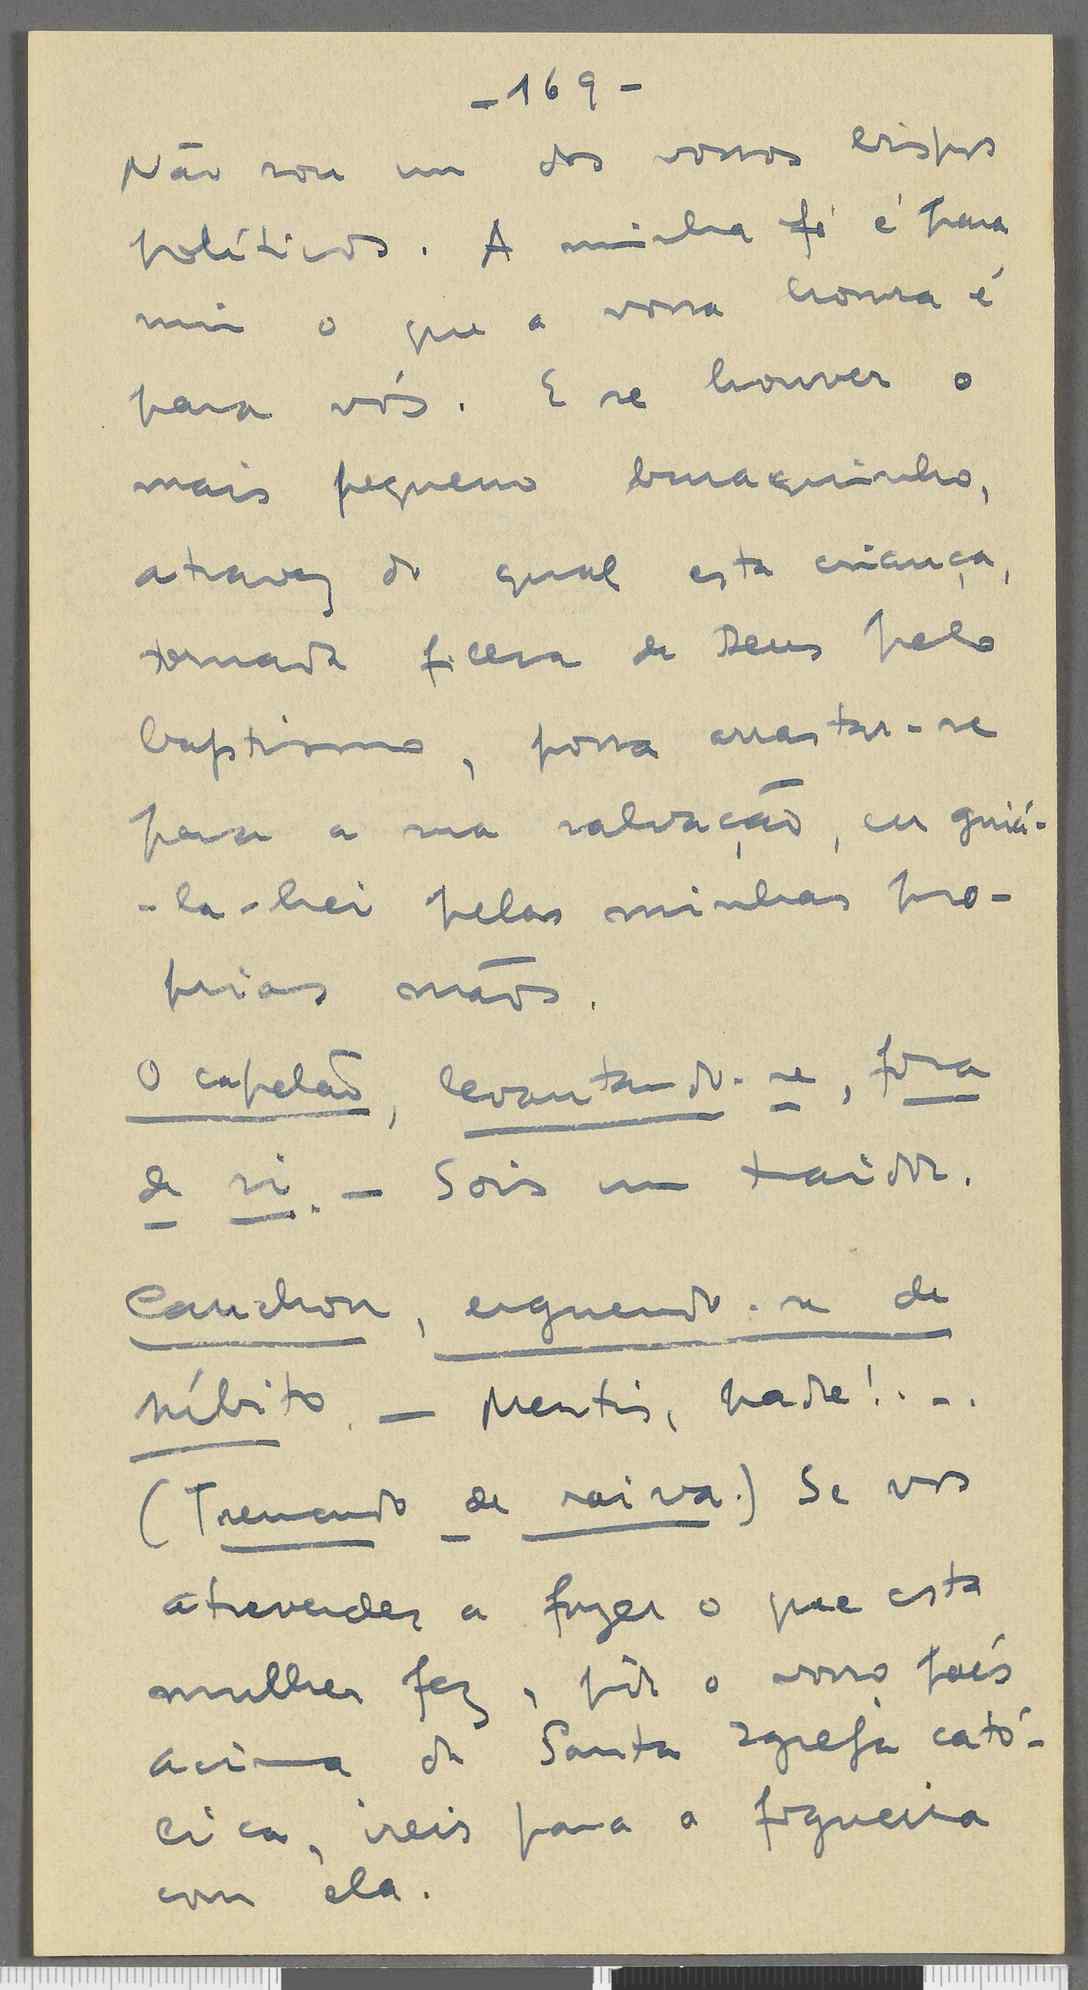 -169-
Não sou um dos vossos bispos
políticos. A minha fé é para
mim o que a vossa honra é
para vós. E se houver o
mais pequeno buraquinho,
atravez do qual esta criança,
tornada filha de Deus pelo
baptismo, possa arrastar-se
para a sua salvação, eu guiá-
-la-hei pelas minhas pro-
prias mãos.
O capelão, levantando-se, fora
de si. — Sois um traidor.
Cauchon, erguendo-se de
súbito. — Mentis, padre!...
(Tremendo de raiva.) Se vos
atreverdes a fazer o que esta
mulher fez, pôr o vosso país
acima da Santa Igreja cató-
lica, ireis para a fogueira
com ela.